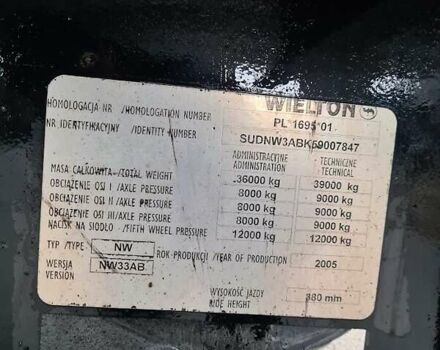 WIELTON
HOMOLOGACJA NR /HOMOLOGATION NUMBER PL*1695*01
NR IDENTYFIKACYJNY /IDENTITY NUMBER SUDNW3ABK59007847
ADMINISTRACYJNE TECHNICZNE
ADMINISTRATION TECHNICAL
MASA CAŁKOWITA /TOTAL WEIGHT 36000 kg 39000 kg
OBCIĄŻENIE OSI I /AXLE PRESSURE 8000 kg 9000 kg
OBCIĄŻENIE OSI II /AXLE PRESSURE 8000 kg 9000 kg
OBCIĄŻENIE OSI III /AXLE PRESSURE 8000 kg 9000 kg
NACISK NA SIODŁO /FIFTH WHEEL PRESSURE 12000 kg 12000 kg
TYP /TYPE NW ROK PRODUKCJI /YEAR OF PRODUCTION 2005
WERSJA
VERSION NW33AB
WYSOKOŚĆ JAZDY
RIDE HEIGHT 380 mm